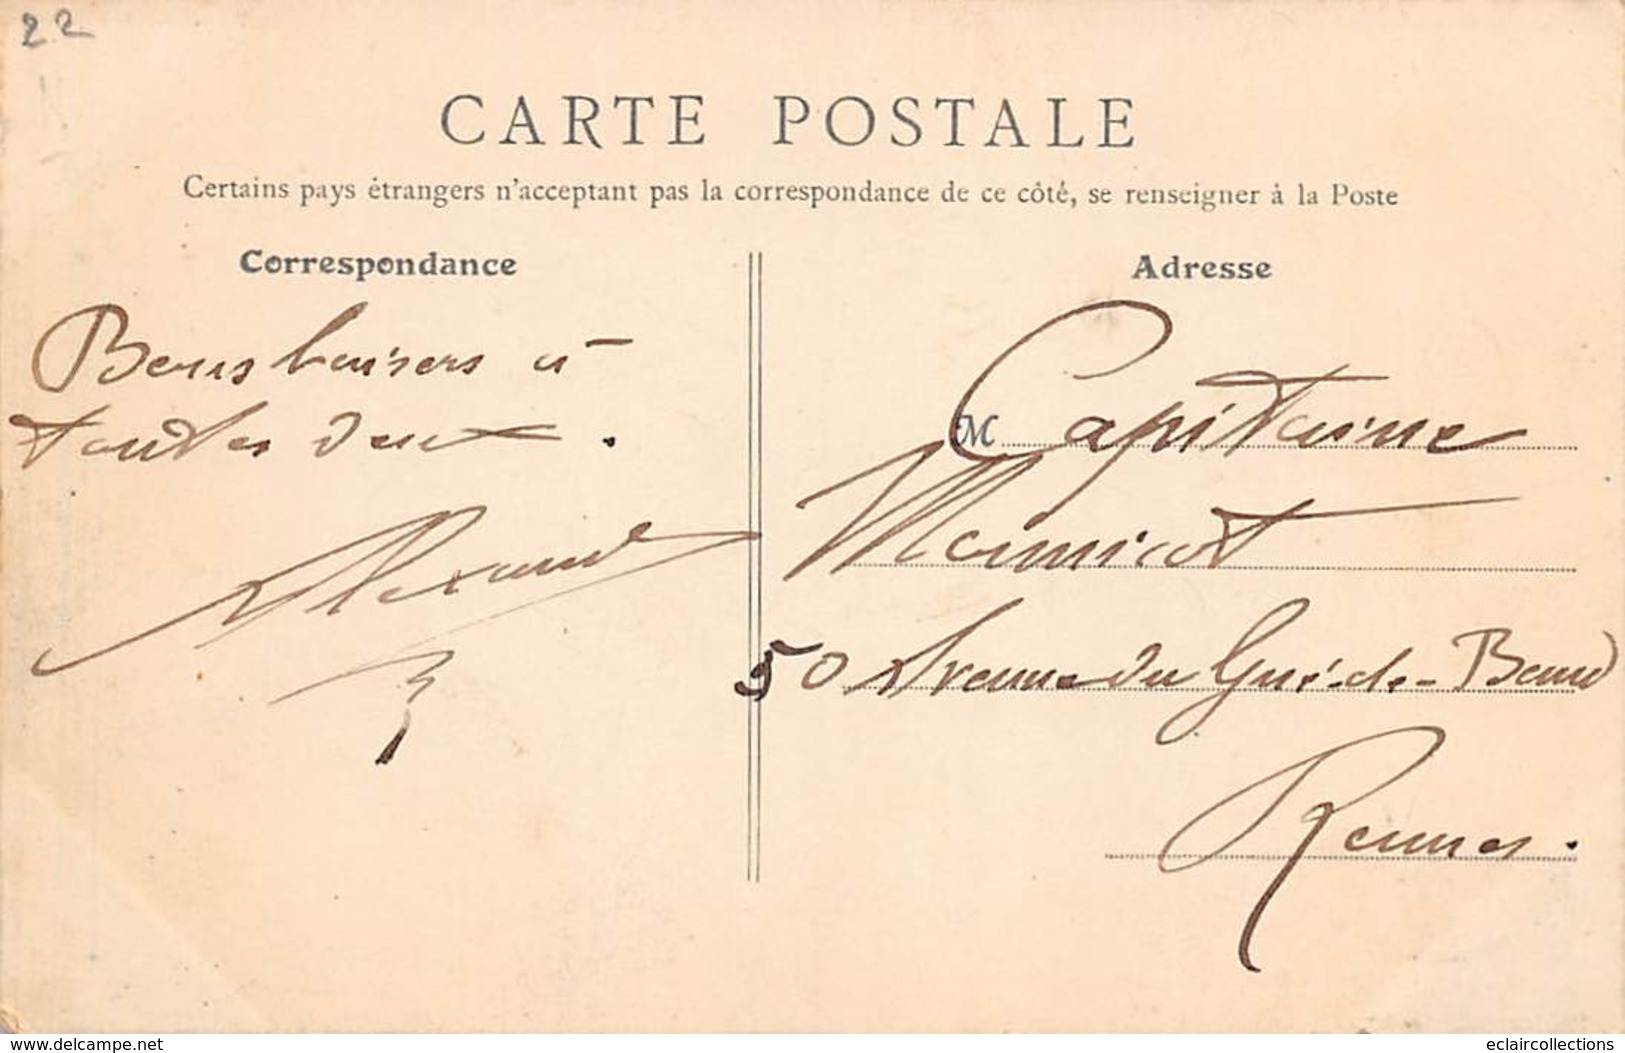 22
CARTE POSTALE
Certains pays étrangers n'acceptant pas la correspondance de ce côté, se renseigner à la Poste
Correspondance
Bons baisers à
toutes deux.
Adresse
M Capitaine
50 Avenue du Gué-de-Baud
Rennes.
www.delcampe.net
eclaircollections